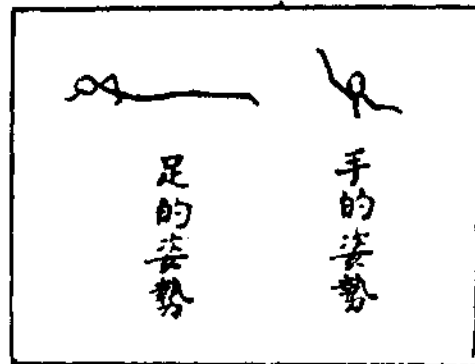 手的姿勢
足的姿勢